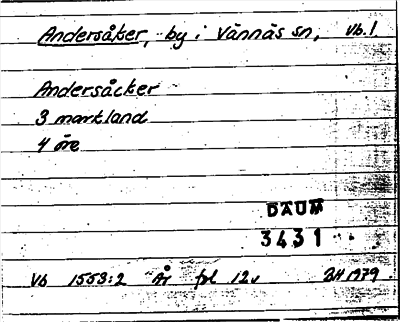 Andersåker, by i Vännäs sn, Vb.1
Andersåcker
3 markland
4 öre
DAUM
3431
Vb 1553:2 År fol 12v BH 1979